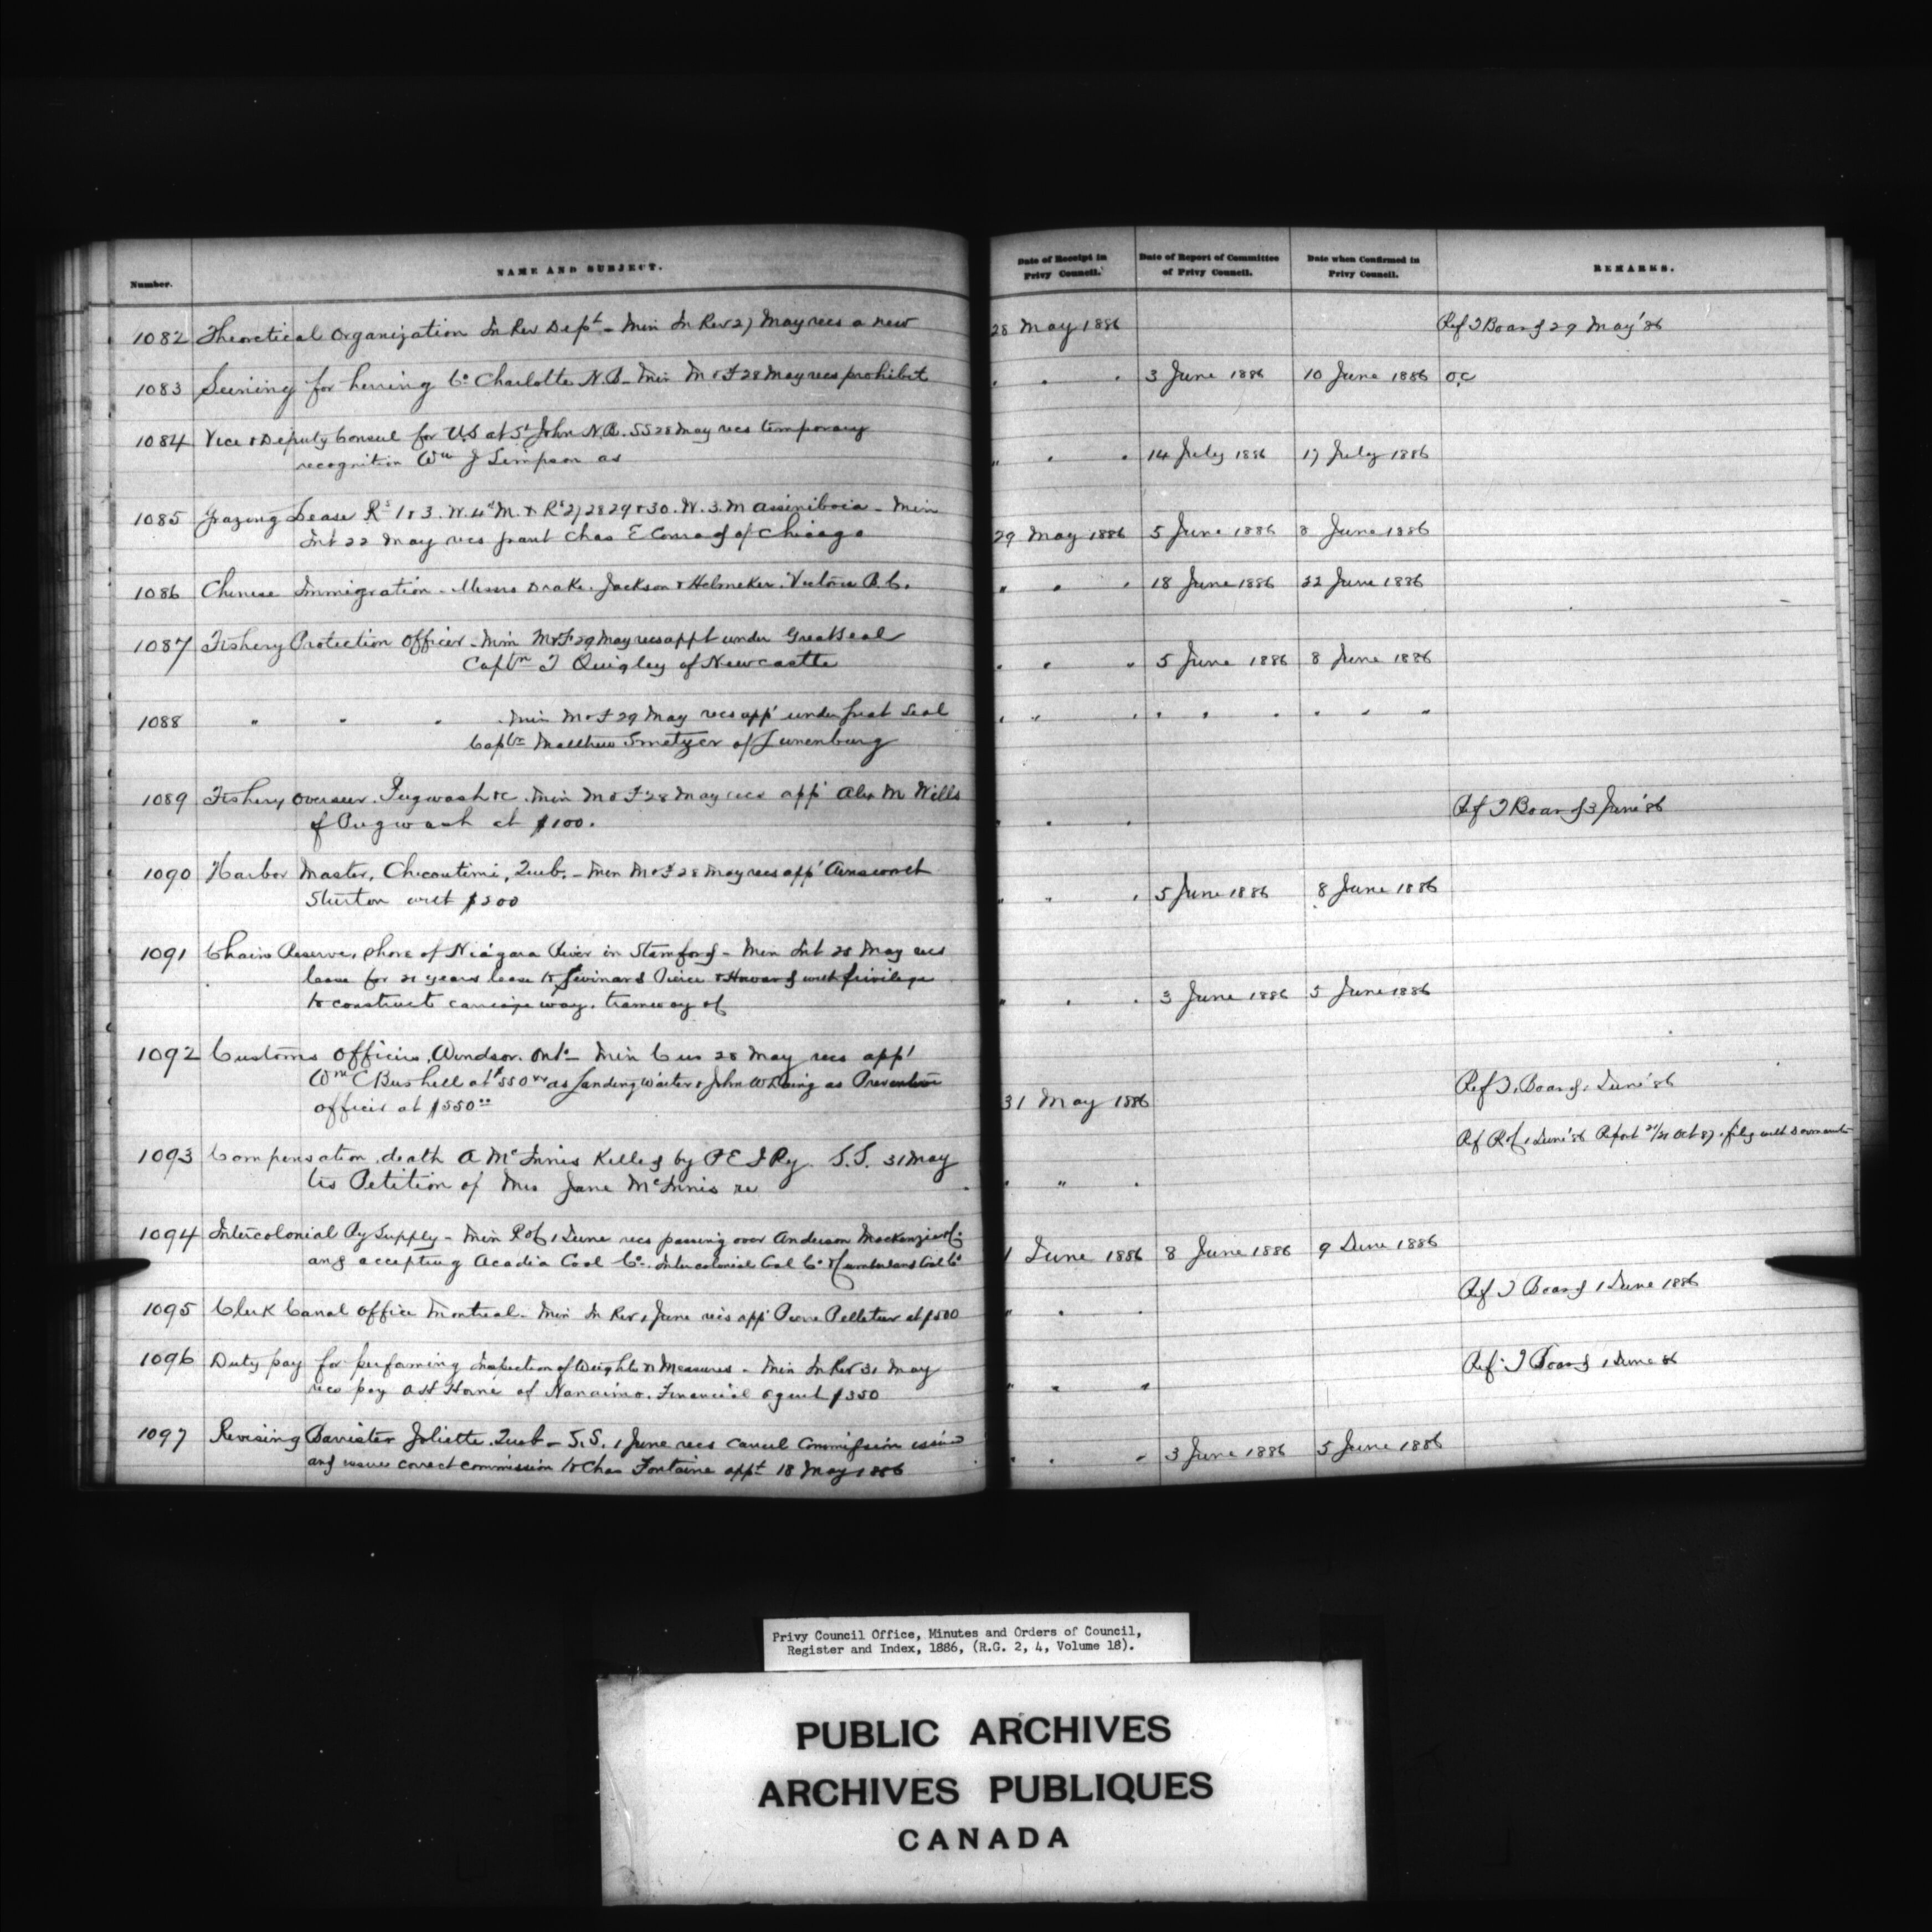 Number.
NAME AND SUBJECT.
Date of Receipt in Privy Council.
Date of Report of Committee of Privy Council.
Date when Confirmed in Privy Council.
REMARKS.
1082 Theoretical Organization In Rev Dept - Min In Rev 27 May recs a new 28 May 1886 Ref T Board 29 May '86
1083 Seining for herring Co Charlotte N.B - Min M & F 28 May recs prohibit " " " 3 June 1886 10 June 1886 O.C
1084 Vice & Deputy Consul for U.S at St John N.B. SS 28 May recs temporary
recognition Wm J Simpson as " " " 14 July 1886 17 July 1886
1085 Grazing Lease Rs 1 & 3. W. 4th M. & Rs 27 28 29 & 30. W. 3. M Assiniboia - Min
Int 22 May recs grant Chas E Conrad of Chicago 29 May 1886 5 June 1886 8 June 1886
1086 Chinese Immigration - Messrs Drake, Jackson & Helmcken. Victoria B.C. " " " 18 June 1886 22 June 1886
1087 Fishery Protection Officer - Min M & F 29 May recs appt under Great Seal
Captn T Quigley of Newcastle " " " 5 June 1886 8 June 1886
1088 " " " - Min M & F 29 May recs appt under Great Seal " " " " " " " " "
Captn Matthew Smetzer of Lunenburg
1089 Fishery Overseer. Pugwash &c. Min M & F 28 May recs appt Alex M Wells
of Pugwash at $100. " " " Ref T Board 3 June '86
1090 Harbor Master, Chicoutimi, Queb. - Min M & F 28 May recs appt
Sturton with $200 " " " 5 June 1886 8 June 1886
1091 Chain Reserve, shore of Niagara River in Stamford - Min Int 28 May recs
lease for 21 years lease to Pierce & Howard with privilege
to construct carriage way, tramway &c " " " 3 June 1886 5 June 1886
1092 Customs Officers, Windsor. Ont - Min Cus 28 May recs appt
Wm C Bushell at $550 as Landing Waiter & John Whiting as Preventive
officer at $550 31 May 1886 Ref T. Board 1 June '86
1093 Compensation death A McInnis Killed by P E I Ry. S.S. 31 May
Petition of Mrs Jane McInnis re " " " Ref R of 1 June '86 Report Oct 87, file with
1094 Intercolonial Ry Supply - Min R of 1 June recs passing over Anderson Mackenzie &c
and accepting Acadia Coal Co. Intercolonial Coal Co & Cumberland Coal Co 1 June 1886 8 June 1886 9 June 1886
1095 Clerk Canal Office Montreal - Min In Rev 1 June recs appt Pierre Pelletier at $500 " " " Ref T Board 1 June 1886
1096 Duty pay for performing Inspection of Weights & Measures - Min In Rev 31 May
recs pay A H Horne of Nanaimo. Financial agent $350 " " " Ref T Board 1 June 86
1097 Revising Barrister Joliette. Queb - S.S. 1 June recs cancel Commission issued
and issue correct commission to Chas Fontaine appt 18 May 1886 " " " 3 June 1886 5 June 1886
Privy Council Office, Minutes and Orders of Council,
Register and Index, 1886, (R.G. 2, 4, Volume 18).
PUBLIC ARCHIVES
ARCHIVES PUBLIQUES
CANADA